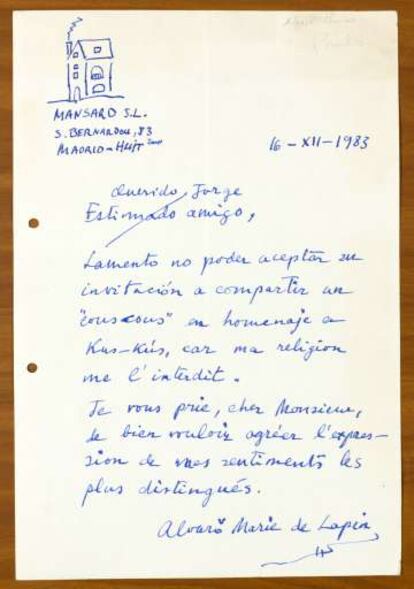 MANSARD S.L.
S. BERNARDO, 83
MADRID-HUIT
16-XII-1983
Querido Jorge
Estimado amigo,
Lamento no poder aceptar su
invitación a compartir un
"couscous" en homenaje a
Kus-Kús, car ma religion
me l'interdit.
Je vous prie, cher Monsieur,
de bien vouloir agréer l'expres-
sion de mes sentiments les
plus distingués.
Alvaro Marie de Lapin